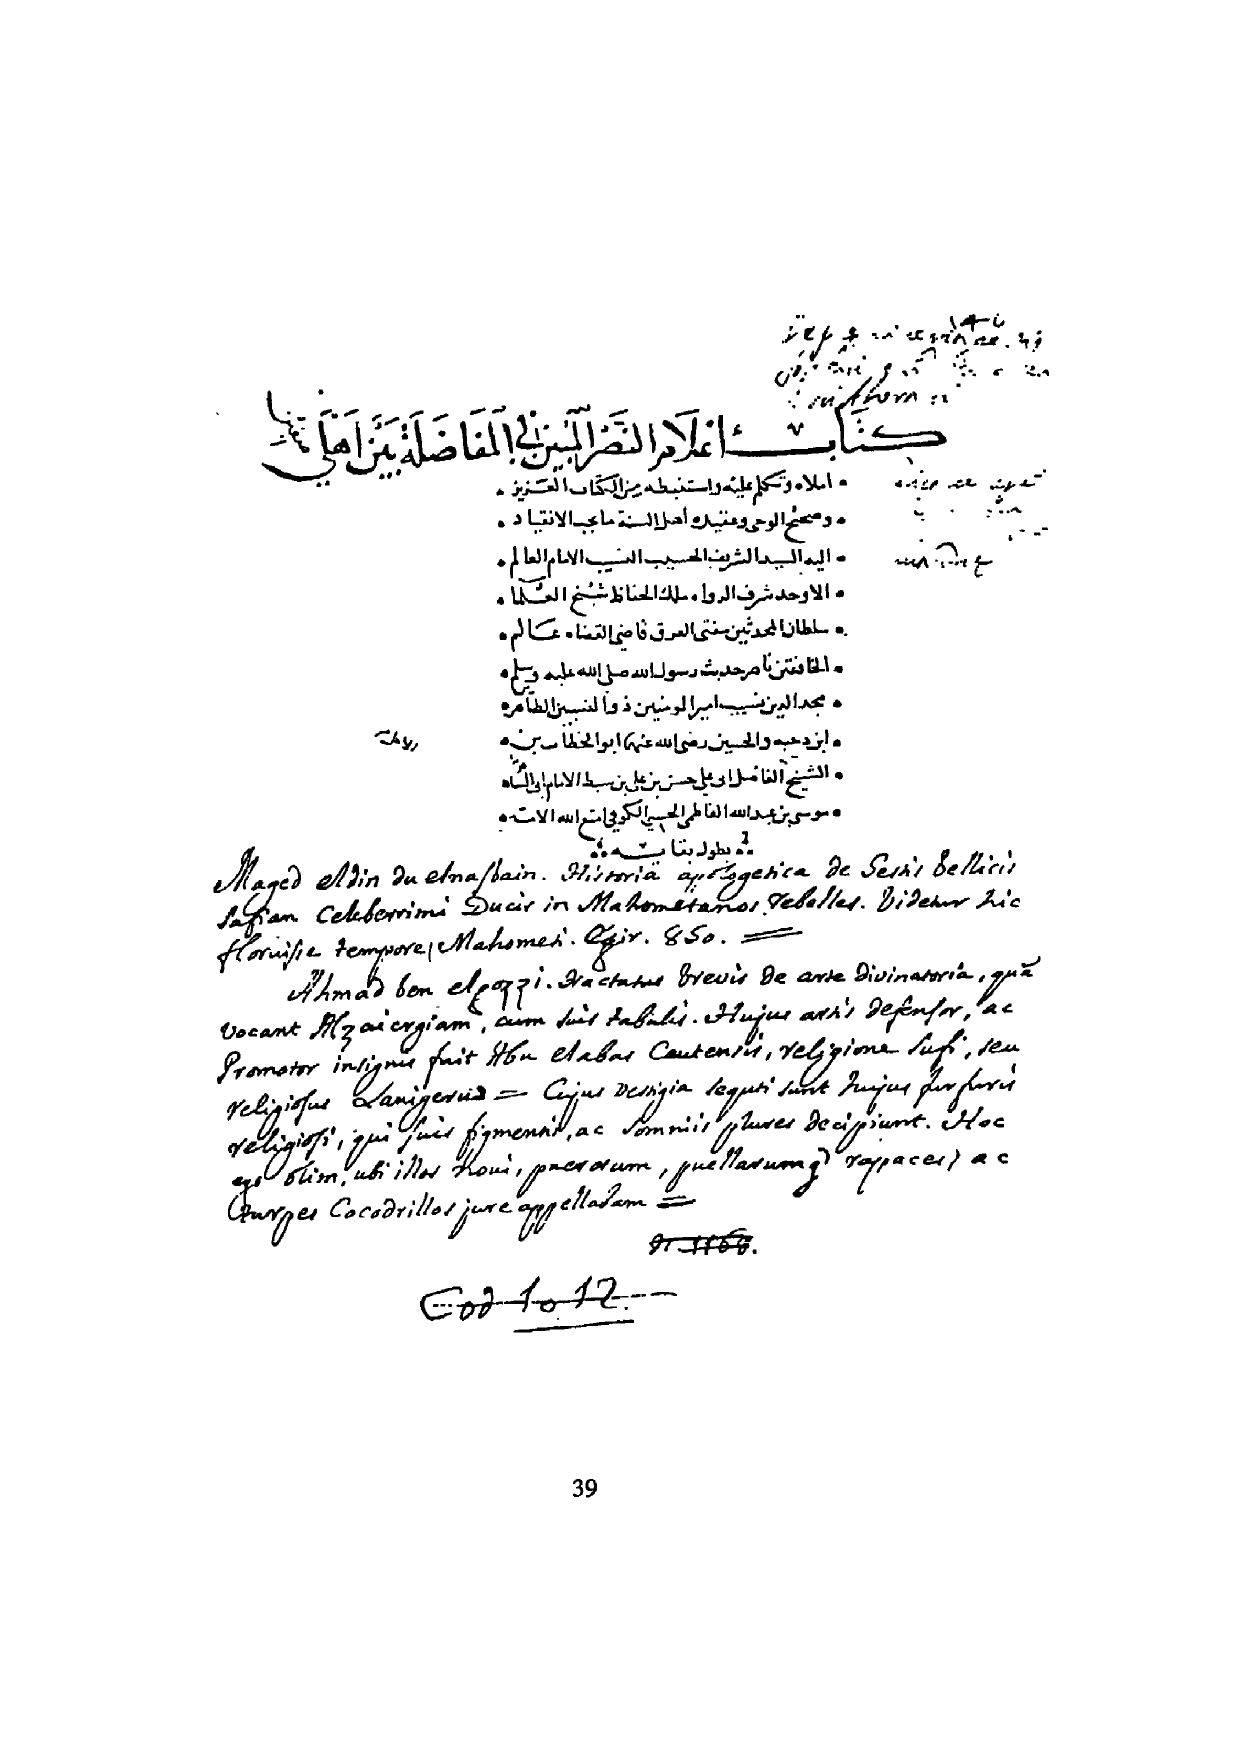 كتاب اعلام النصر المبين في المفاضلة بين اهلي صفين
املاه وتكلم عليه واستنبطه من الكتاب العزيز
وصحيح الوحي وعقيدة أهل السنة ما يجب الانقياد
اليه السيد الشريف الحسيب النسيب الامام العالم
الاوحد شرف الرواه ملك الحفاظ شيخ العلما
سلطان المحدثين مفتي الفرق قاضي القضاه عالم
الخافقين ناصر حديث رسول الله صلى الله عليه وسلم
مجد الدين نسيب امير المومنين ذو النسبين الطاهره
ابن دحيه والحسين رضي الله عنهما ابو الخطاب بن
الشيخ الفاضل ابي علي حسن بن علي بن سبط الامام ابي
موسى بن عبد الله الفاطمي الحسيني الكوفي امتع الله الامة
بطول بقائه
Maged eldin du elnasbain. Historia apologetica de Gestis bellicis
Safian Celeberrimi Ducis in Mahometanos rebelles. Videtur hic
floruisse tempore Mahometi. Egir. 850.
Ahmad ben elgozzi. Tractatus brevis de arte divinatoria, quã
vocant Alzaiergiam, cum suis tabulis. Hujus artis defensor, ac
Promotor insignis fuit Abu elabas Ceutensis, religione sufi, seu
religiosus Lanigerus = Cujus vestigia sequti sunt hujus furfuris
religiosi, qui suis figmentis, ac somniis plures decipiunt. Hoc
ego olim, ubi illos novi, puerorum, puellarumq rapaces, ac
turpes Cocodrillos jure appellabam =
Cod 1012
39